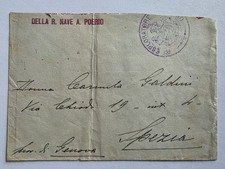 DELLA R. NAVE A. POERIO
ESPLORATORE
Donna Carmela Galdini
Via Chiodo 19 - int 4
Spezia
Genova